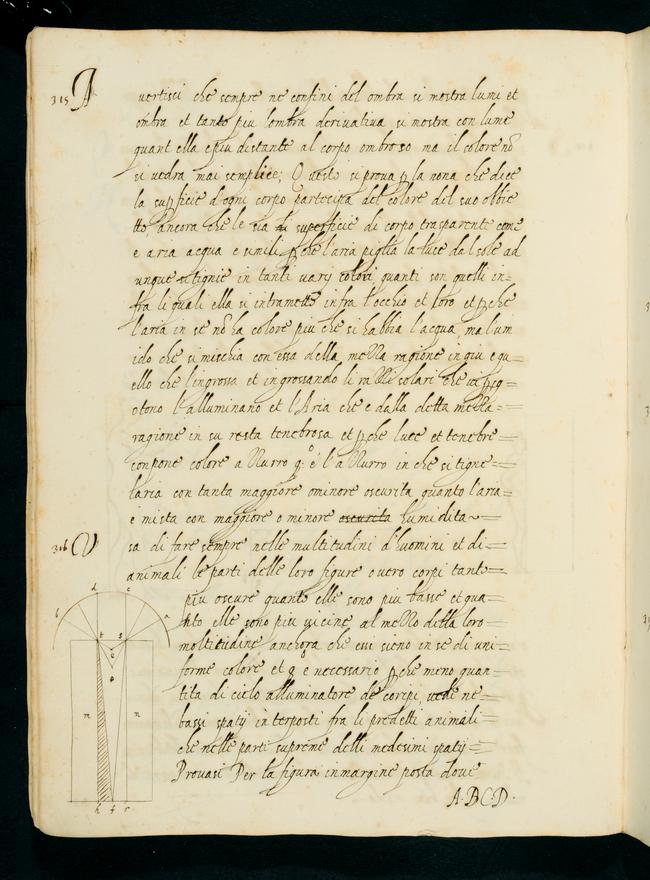 315 Avertisci che sempre ne confini del ombra si mostra lumi et
ombra et tanto piu lombra derivativa si mostra con lume
quant ella e piu distante al corpo ombroso ma il colore nõ
si vedra mai semplice; Questo si prova ꝑ la nona che dice
la suꝑficie d'ogni corpo partecipa del colore del suo obbie
tto ancora che le sia superficie di corpo trasparente come
e aria acqua e simili ꝑche l'aria piglia la luce dal sole ad
unque si tignie in tanti varij colori quanti son quelli in=
fra li quali ella si intramette infra l'occhio et loro et ꝑche
l'aria in se nõ ha colore piu che si habbia l'acqua, ma l'um
ido che si mischia con essa della mezza ragione in giu e qu=
ello che l'ingrossa et ingrossando li razzi solari che vi ꝑcq=
otono l'alluminano et l'Aria che e dalla detta mezza=
ragione in su resta tenebrosa et ꝑche luce et tenebre=
conpone colore azzurro q.º é l'azzurro in che si tigne=
laria con tanta maggiore o minore oscurita quanto l'aria=
é mista con maggiore o minore oscurita humidita~
316 Usa di fare sempre nelle multitudini d'huomini et di=
animali le parti delle loro figure overo corpi tant=
piu oscure quanto elle sono piu basse et qua=
nto elle sono piu vicine al mezzo della loro=
moltitudine anchora che essi sieno in se di uni=
forme colore et q.º e necessario ꝑche meno quan=
tita di cielo alluminatore de corpi vede ne=
bassi spatij interposti fra li predetti animali=
che nelle parti supreme delli medesimi spatij=
Provasi Per la figura inmargine posta dove
A.B.C.D.
d c
b a
t s
e
o
m n
h f r